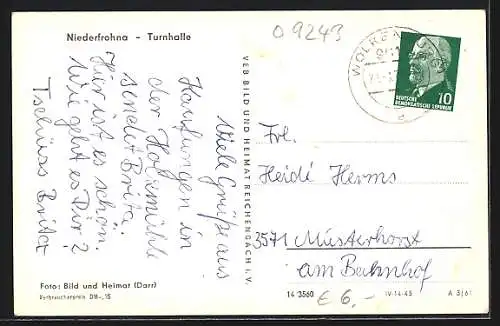 Niederfrohna - Turnhalle
09243
WOLKEN
DEUTSCHE
DEMOKRATISCHE REPUBLIK
10
Viele Grüße aus
Kaufungen in
der Holzmühle
sendet Brita
Hier ist es schön
Wie geht es Dir?
Tschüss Brita
VEB BILD UND HEIMAT REICHENBACH i. V.
Frl.
Heidi Herms
3571 Müsterhorst
am Bahnhof
Foto: Bild und Heimat (Darr)
Verbraucherpreis DM -,15
14 3560
€ 6,-
IV-14-45
A 3/61